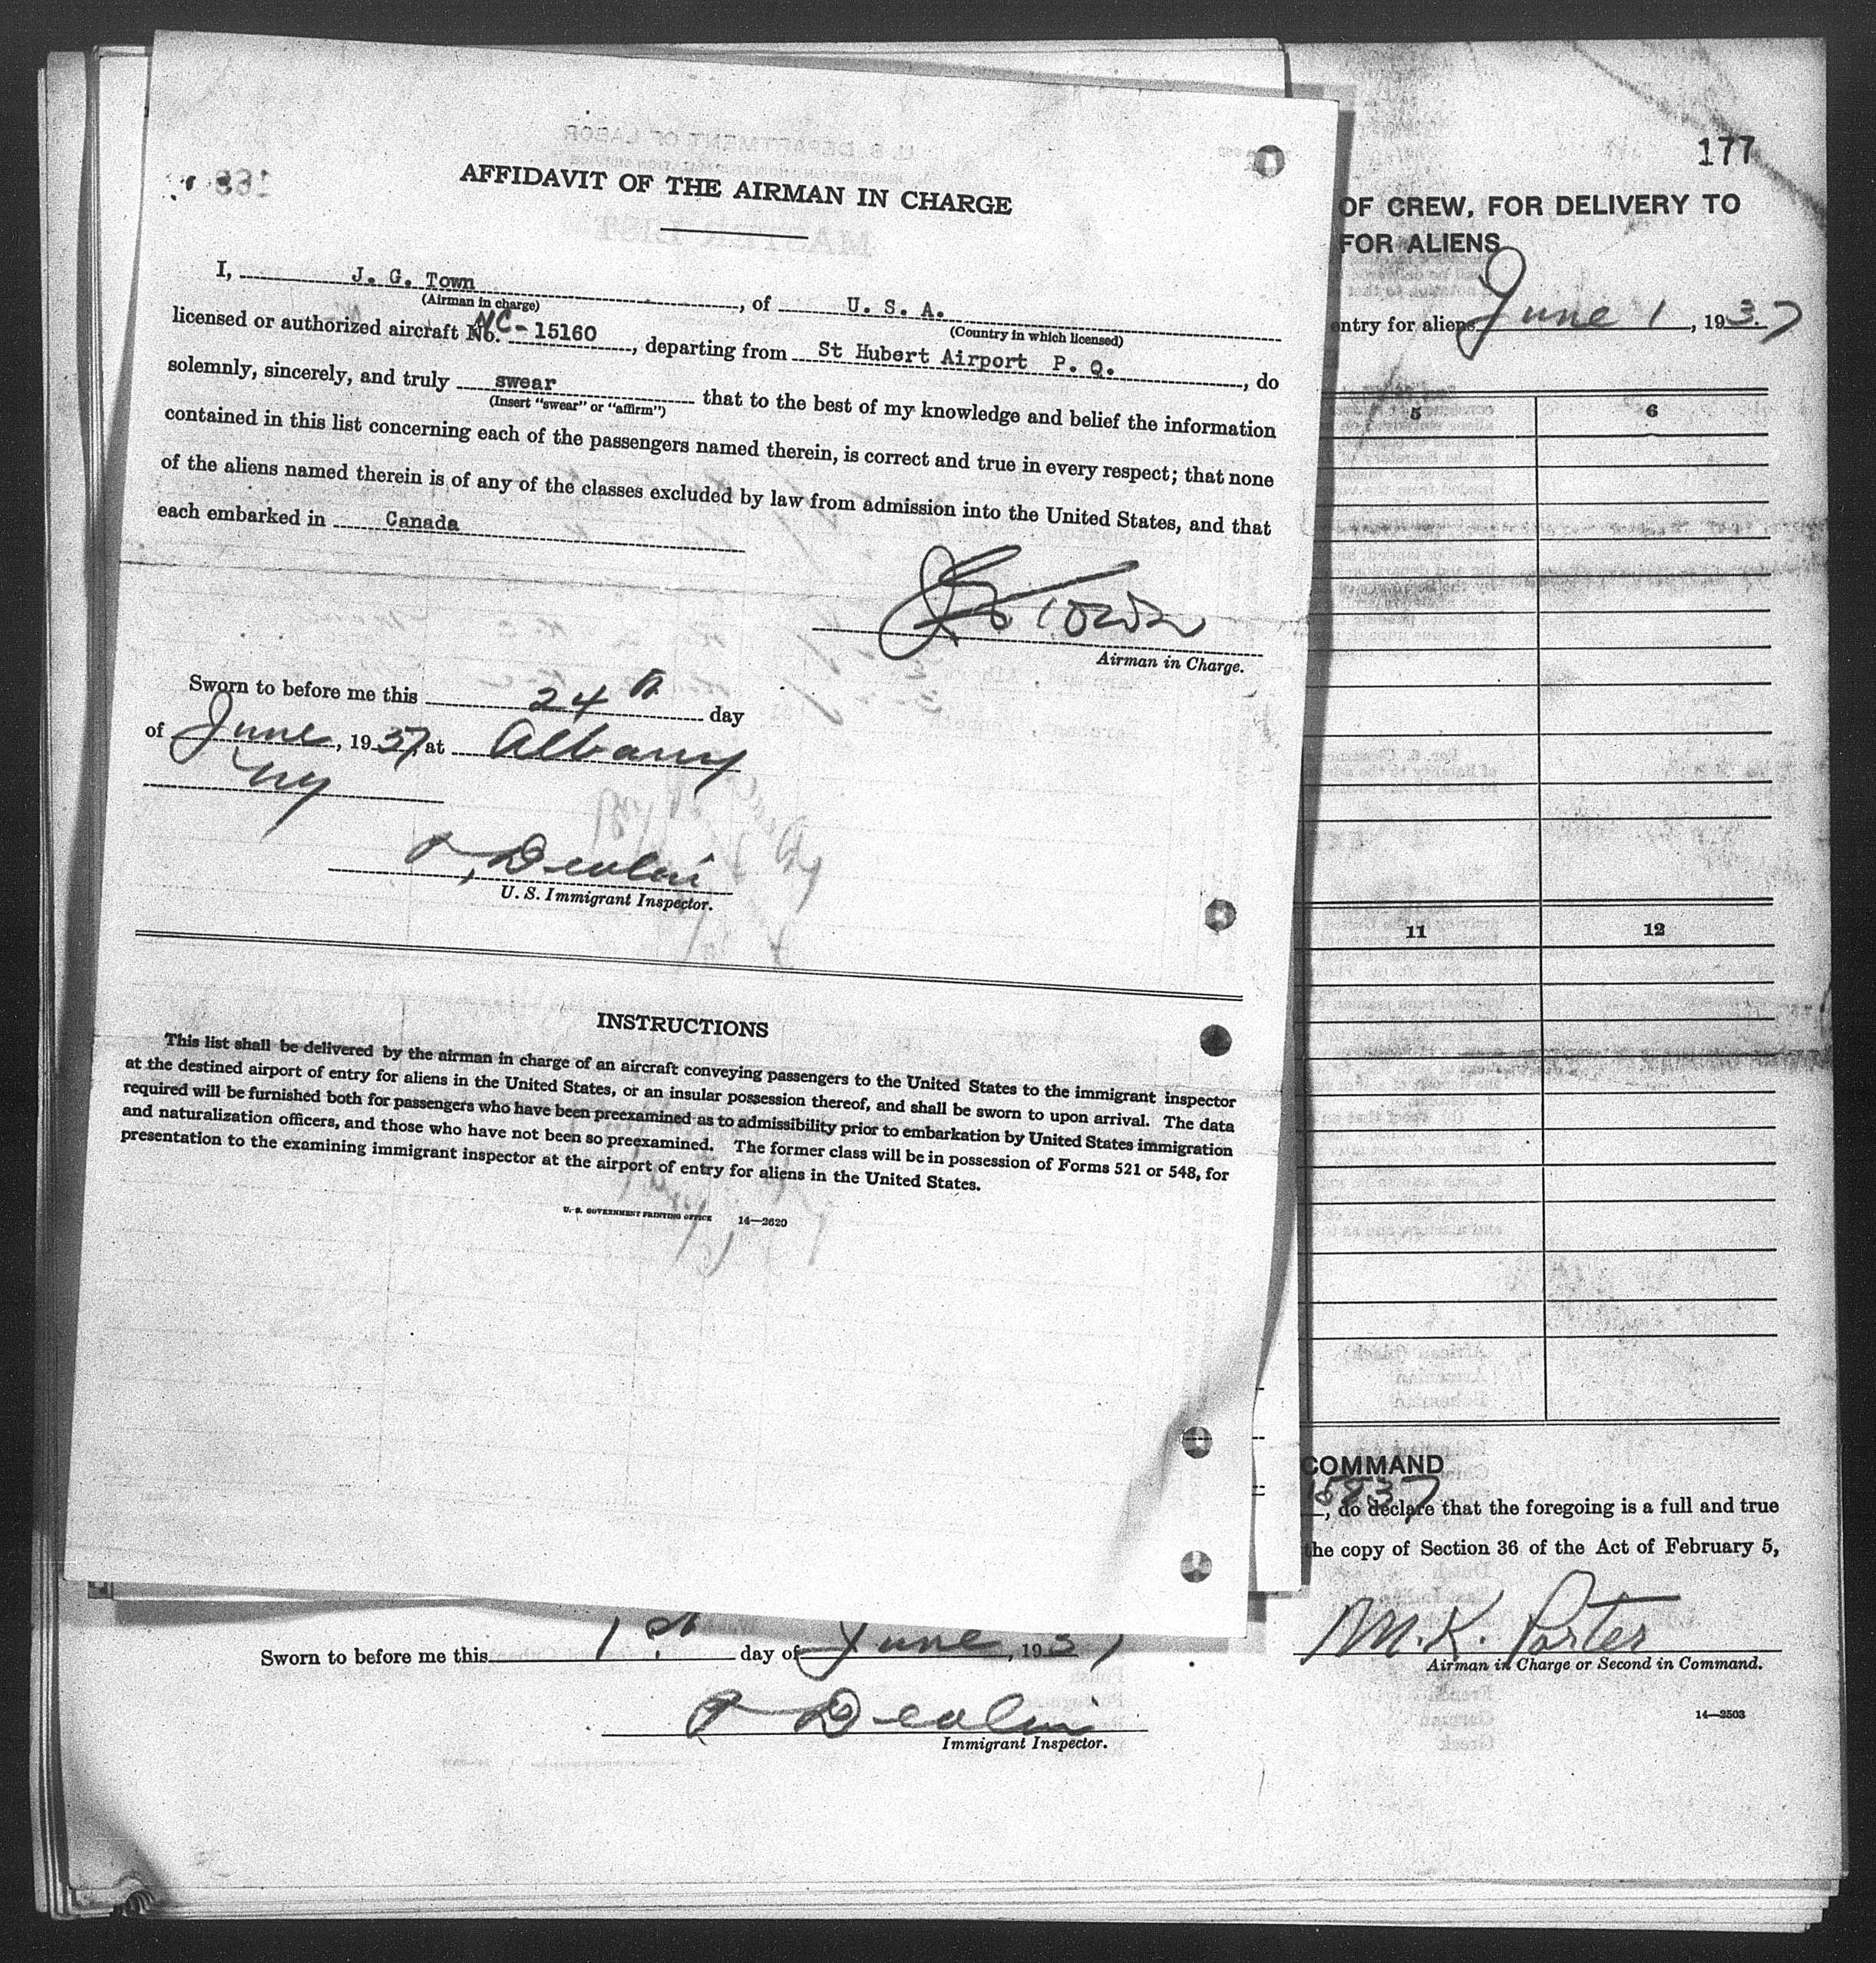 AFFIDAVIT OF THE AIRMAN IN CHARGE
I, J. G. Town, of U. S. A.
(Airman in charge) (Country in which licensed)
licensed or authorized aircraft No. NC-15160, departing from St Hubert Airport P. Q., do
solemnly, sincerely, and truly swear that to the best of my knowledge and belief the information
(Insert "swear" or "affirm")
contained in this list concerning each of the passengers named therein, is correct and true in every respect; that none
of the aliens named therein is of any of the classes excluded by law from admission into the United States, and that
each embarked in Canada
J G Town
Airman in Charge.
Sworn to before me this 24th day
of June, 1937, at Albany
NY
Devlin
U. S. Immigrant Inspector.
INSTRUCTIONS
This list shall be delivered by the airman in charge of an aircraft conveying passengers to the United States to the immigrant inspector
at the destined airport of entry for aliens in the United States, or an insular possession thereof, and shall be sworn to upon arrival. The data
required will be furnished both for passengers who have been preexamined as to admissibility prior to embarkation by United States immigration
and naturalization officers, and those who have not been so preexamined. The former class will be in possession of Forms 521 or 548, for
presentation to the examining immigrant inspector at the airport of entry for aliens in the United States.
U. S. GOVERNMENT PRINTING OFFICE 14—2620
177
OF CREW, FOR DELIVERY TO
FOR ALIENS
entry for aliens June 1, 1937
5 6
11 12
COMMAND
15837
, do declare that the foregoing is a full and true
the copy of Section 36 of the Act of February 5,
M. K. Porter
Airman in Charge or Second in Command.
14—2503
Sworn to before me this 1st day of June, 1937
Devlin
Immigrant Inspector.